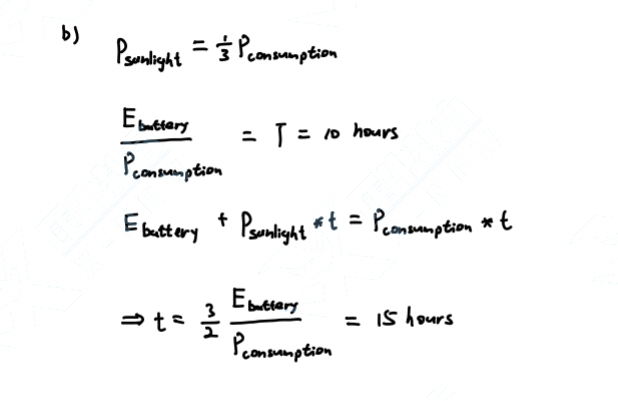 b) P_sunlight = 1/3 P_consumption
E_battery / P_consumption = T = 10 hours
E_battery + P_sunlight * t = P_consumption * t
⇒ t = 3/2 E_battery / P_consumption = 15 hours